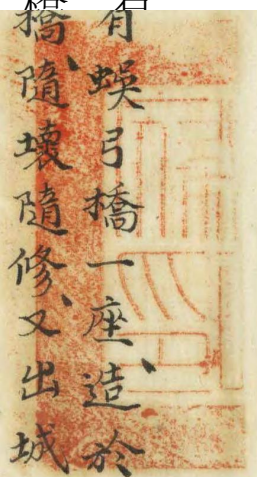 有蜈弓橋一座、造於
橋、隨壞隨修、又出城